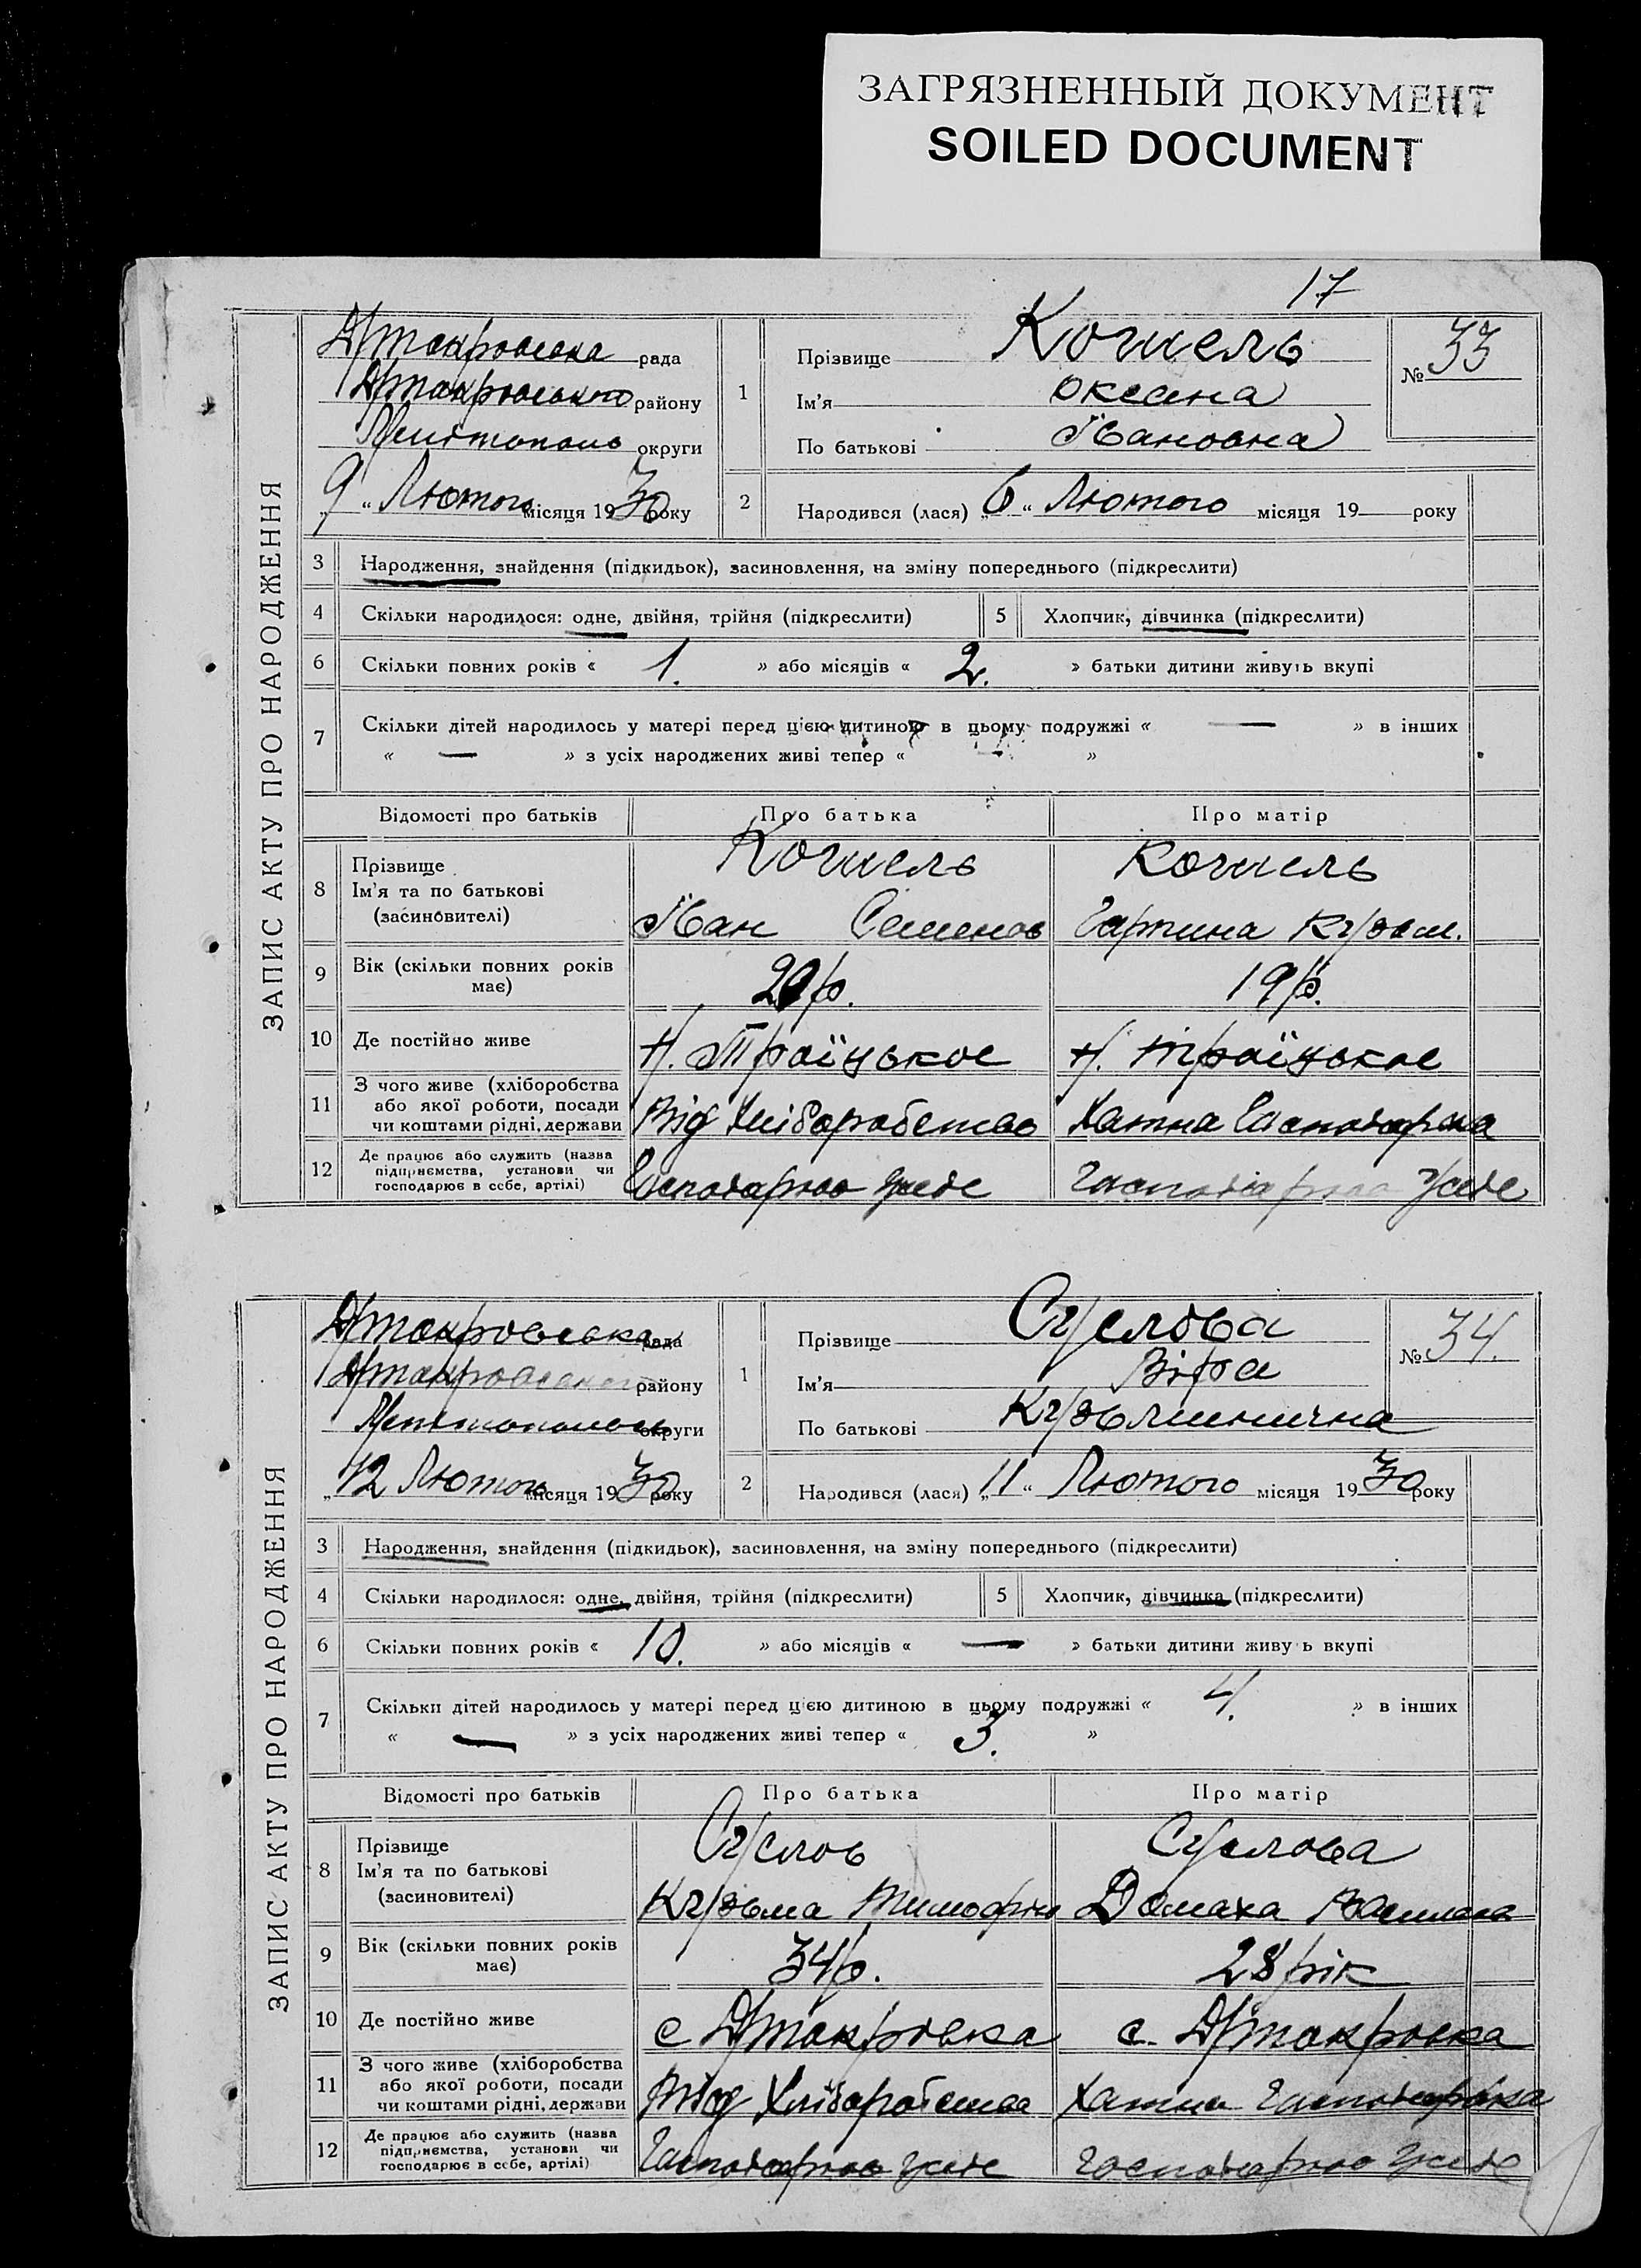 ЗАГРЯЗНЕННЫЙ ДОКУМЕНТ
SOILED DOCUMENT
17
ЗАПИС АКТУ ПРО НАРОДЖЕННЯ
рада
району
округи
„9“ Лютого місяця 1930 року
1
Прізвище
Ім’я Оксана
По батькові Івановна
№ 33
2
Народився (лася) „6“ Лютого місяця 19 року
3 Народження, знайдення (підкидьок), засиновлення, на зміну попереднього (підкреслити)
4 Скільки народилося: одне, двійня, трійня (підкреслити)
5 Хлопчик, дівчинка (підкреслити)
6 Скільки повних років « 1. » або місяців « 2. » батьки дитини живуть вкупі
7 Скільки дітей народилось у матері перед цією дитиною в цьому подружжі « — » в інших
« — » з усіх народжених живі тепер « »
Відомості про батьків Про батька Про матір
8 Прізвище
Ім’я та по батькові
(засиновителі)
Іван Семенов
9 Вік (скільки повних років має)
20 р. 19 р.
10 Де постійно живе
Н. Троїцькое Н. Троїцькое
11 З чого живе (хліборобства
або якої роботи, посади
чи коштами рідні, держави
Від Хліборобство Хатна
12 Де працює або служить (назва
підприємства, установи чи
господарює в себе, артілі)
ЗАПИС АКТУ ПРО НАРОДЖЕННЯ
рада
району
округи
„12 Лютого місяця 1930 року
1
Прізвище Суслова
Ім’я Віра
По батькові
№ 34.
2
Народився (лася) „11“ Лютого місяця 1930 року
3 Народження, знайдення (підкидьок), засиновлення, на зміну попереднього (підкреслити)
4 Скільки народилося: одне, двійня, трійня (підкреслити)
5 Хлопчик, дівчинка (підкреслити)
6 Скільки повних років « 10. » або місяців « — » батьки дитини живуть вкупі
7 Скільки дітей народилось у матері перед цією дитиною в цьому подружжі « 4. » в інших
« — » з усіх народжених живі тепер « 3. »
Відомості про батьків Про батька Про матір
8 Прізвище
Ім’я та по батькові
(засиновителі)
Суслов Суслова
Кузьма Домаха
9 Вік (скільки повних років має)
34 р. 28 рік
10 Де постійно живе
с с.
11 З чого живе (хліборобства
або якої роботи, посади
чи коштами рідні, держави
Від Хліборобства Хатна
12 Де працює або служить (назва
підприємства, установи чи
господарює в себе, артілі)